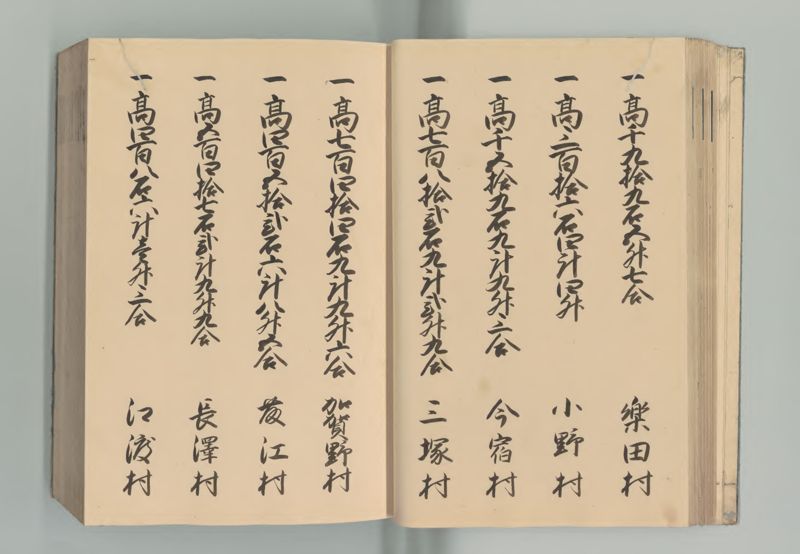 一高千九拾九石五斗七合 楽田村
一高三百拾六石四斗四升 小野村
一高千五拾九石九斗九升三合 今宿村
一高七百八拾弐石九斗弐升九合 三塚村
一高七百四拾四石九斗九升六合 加賀野村
一高四百五拾弐石六斗八升五合 発江村
一高五百四拾七石弐斗九升九合 長澤村
一高四百八石六斗壱升三合 江渡村